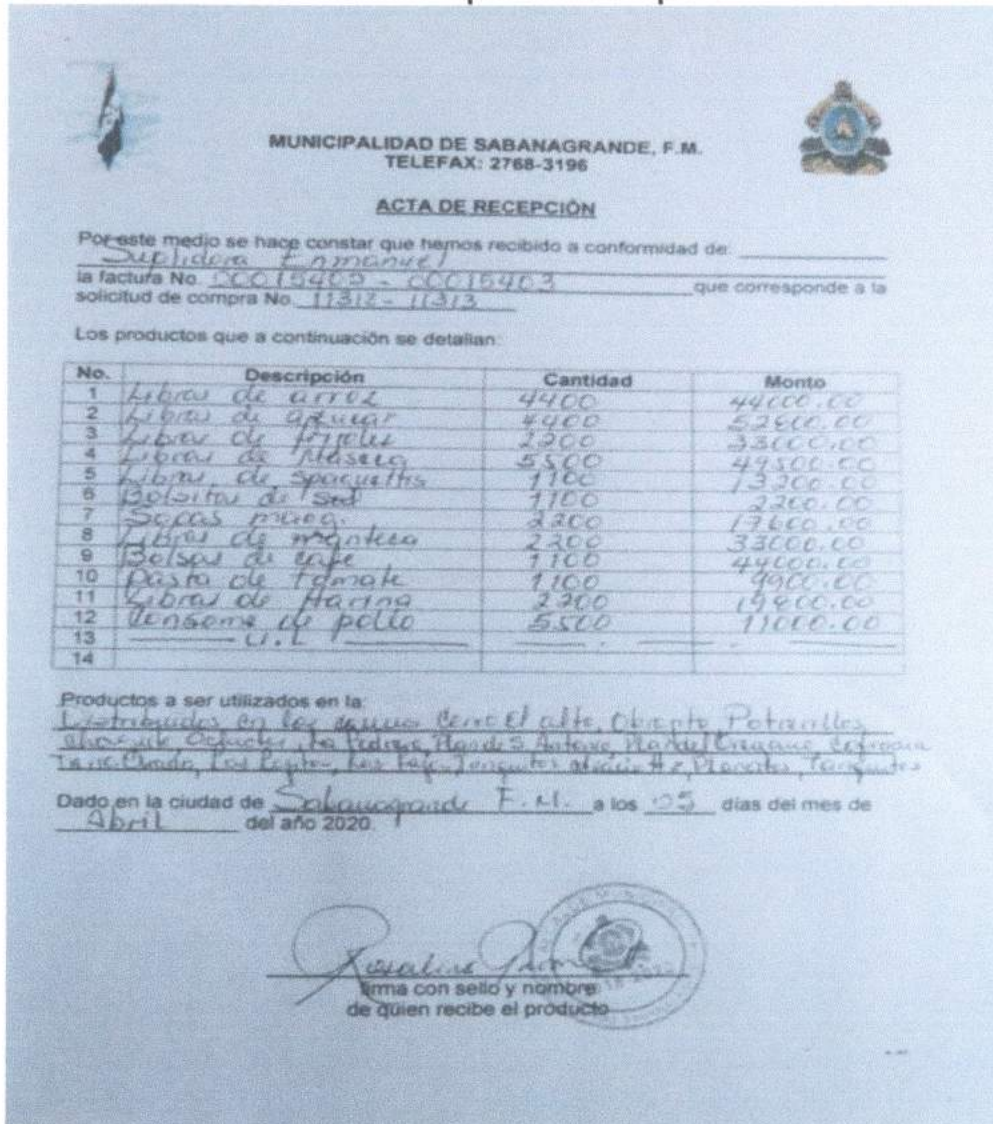 MUNICIPALIDAD DE SABANAGRANDE, F.M.
TELEFAX: 2768-3196
ACTA DE RECEPCIÓN
Por este medio se hace constar que hemos recibido a conformidad de:
Suplidora Enmanuel
la factura No. 00015402 - 00015403 que corresponde a la
solicitud de compra No. 11312 - 11313
Los productos que a continuación se detallan:
No. Descripción Cantidad Monto
1 Libras de arroz 4400 44000.00
2 Libras de azucar 4400 52800.00
3 Libras de frijoles 2200 33000.00
4 Libras de Maseca 5500 49500.00
5 Libras de spaguettis 1100 13200.00
6 Bolsitas de Sal 1100 2200.00
7 Sopas magg. 2200 17600.00
8 Libras de manteca 2200 33000.00
9 Bolsas de cafe 1100 44000.00
10 Pasta de tomate 1100 9900.00
11 Libras de Harina 2200 19800.00
12 Consome de pollo 5500 11000.00
13 U.L
14
Productos a ser utilizados en la:
Distribuidos en los El alto, Potrerillos
La
Los
Dado en la ciudad de Sabanagrande F.M. a los 05 días del mes de
Abril del año 2020.
firma con sello y nombre
de quien recibe el producto